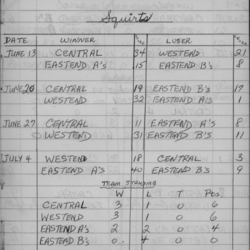 Squirts
DATE WINNER LOSER
JUNE 13 CENTRAL 34 WESTEND 21
EASTEND A's 15 EASTEND B's 8
JUNE 20 CENTRAL 19 EASTEND B's 17
WESTEND 32 EASTEND A's
JUNE 27 CENTRAL 11 EASTEND A's 8
WESTEND 31 EASTEND B's 11
JULY 4 WESTEND 18 CENTRAL 3
EASTEND A's 40 EASTEND B's 9
TEAM STANDING
W L T Pts.
CENTRAL 3 1 0 6
WESTEND 3 1 0 6
EASTEND A's 2 2 0 4
EASTEND B's 0 4 0 0